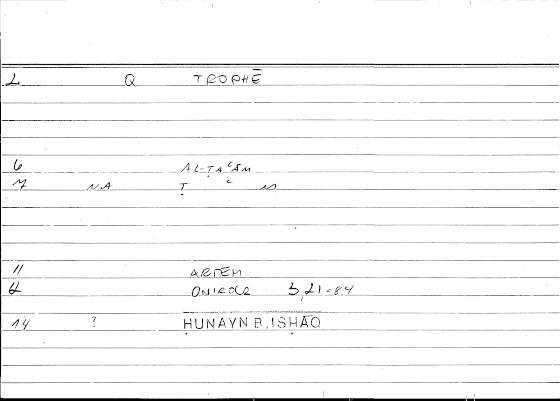 2 Q TROPHĒ
6 AL-ṬAʿĀM
7 NA Ṭ ʿ M
11 ARTEM
12 ONIROCR 3,21-84
14 ? ḤUNAYN B. ISḤĀQ